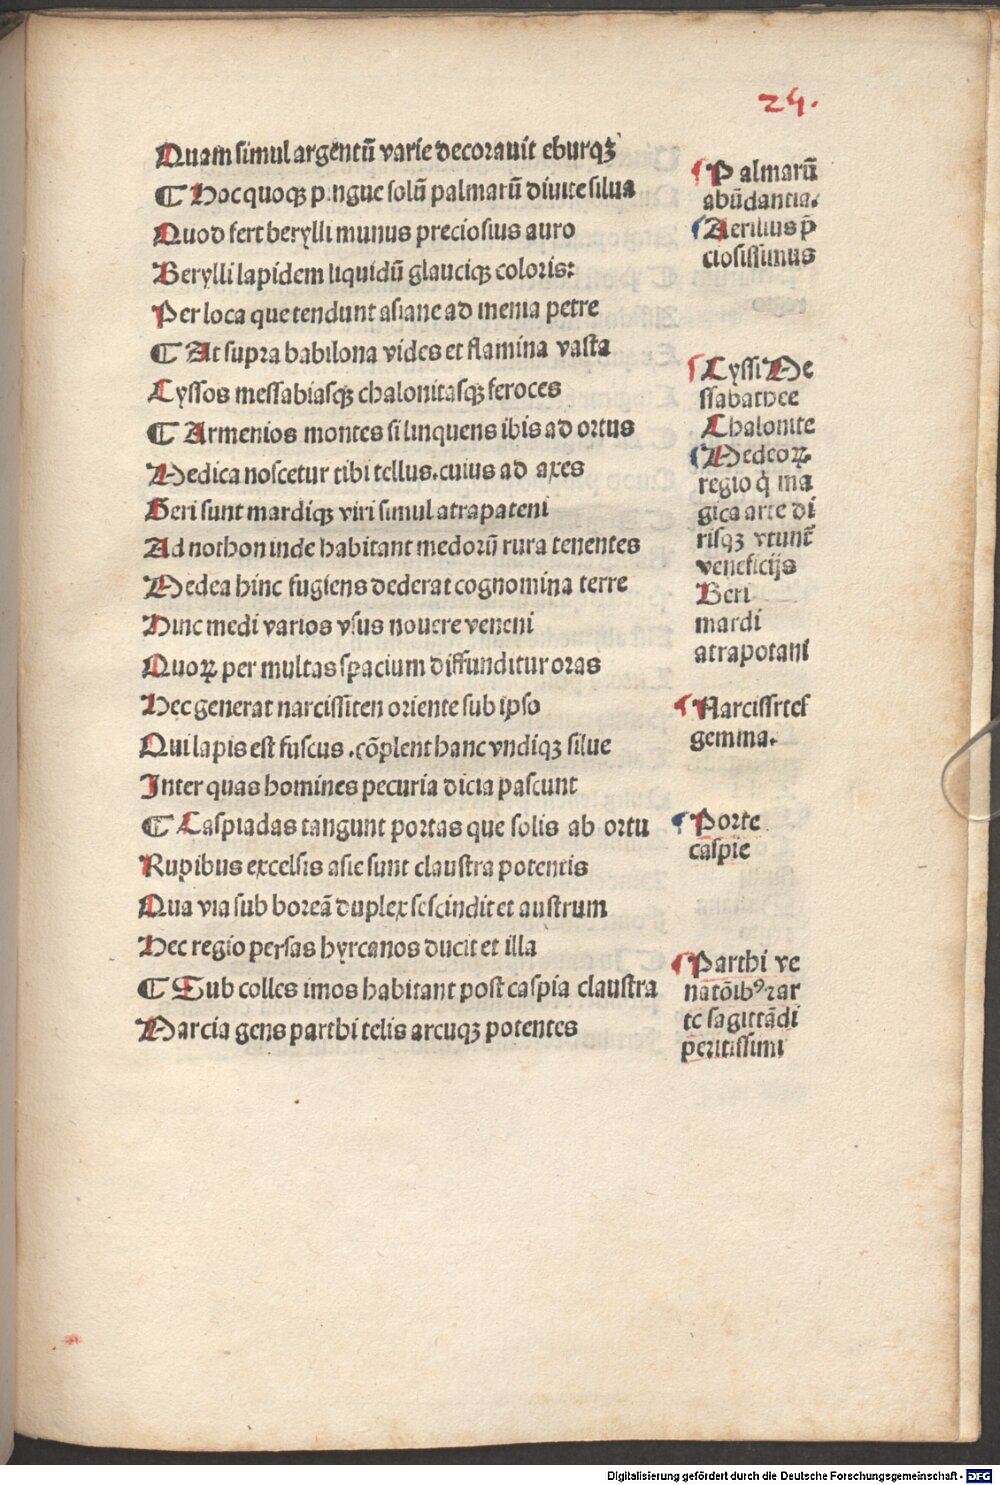 24.
Quam simul argentū varie decorauit eburqꝫ
¶ Hoc quoqꝫ pingue solū palmarū diuite silua
Quod fert berylli munus preciosius auro
Berylli lapidem liquidū glauciqꝫ coloris:
Per loca que tendunt asiane ad menia petre
¶ At supra babilona vides et flamina vasta
Cyssos messabiasqꝫ chalonitasqꝫ feroces
¶ Armenios montes si linquens ibis ad ortus
Medica noscetur tibi tellus. cuius ad axes
Geri sunt mardiqꝫ viri simul atrapateni
Ad nothon inde habitant medorū rura tenentes
Medea hinc fugiens dederat cognomina terre
Hinc medi varios vsus nouere veneni
Quoꝝ per multas spacium diffunditur oras
Hec generat narcissiten oriente sub ipso
Qui lapis est fuscus . cōplent hanc vndiqꝫ silue
Inter quas homines pecuria dicia pascunt
¶ Caspiadas tangunt portas que solis ab ortu
Rupibus excelsis asie sunt claustra potentis
Qua via sub boreā duplex se scindit et austrum
Hec regio persas hyrcanos ducit et illa
¶ Sub colles imos habitant post caspia claustra
Marcia gens parthi telis arcuqꝫ potentes
¶ Palmarū
abūdantia.
¶ Aerilius p̄
ciosissimus
¶ Cyssi Me
ssabatvee
Chalonite
¶ Medeoꝝ.
regio q̇ ma
gica arte di
risqꝫ vtunt̄
veneficijs
Beri
mardi
atrapotani
¶ Narcissites
gemma.
¶ Porte
caspie
¶ Parthi ve
natōibꝰ ⁊ar
te sagittādi
peritissimi
Digitalisierung gefördert durch die Deutsche Forschungsgemeinschaft - DFG